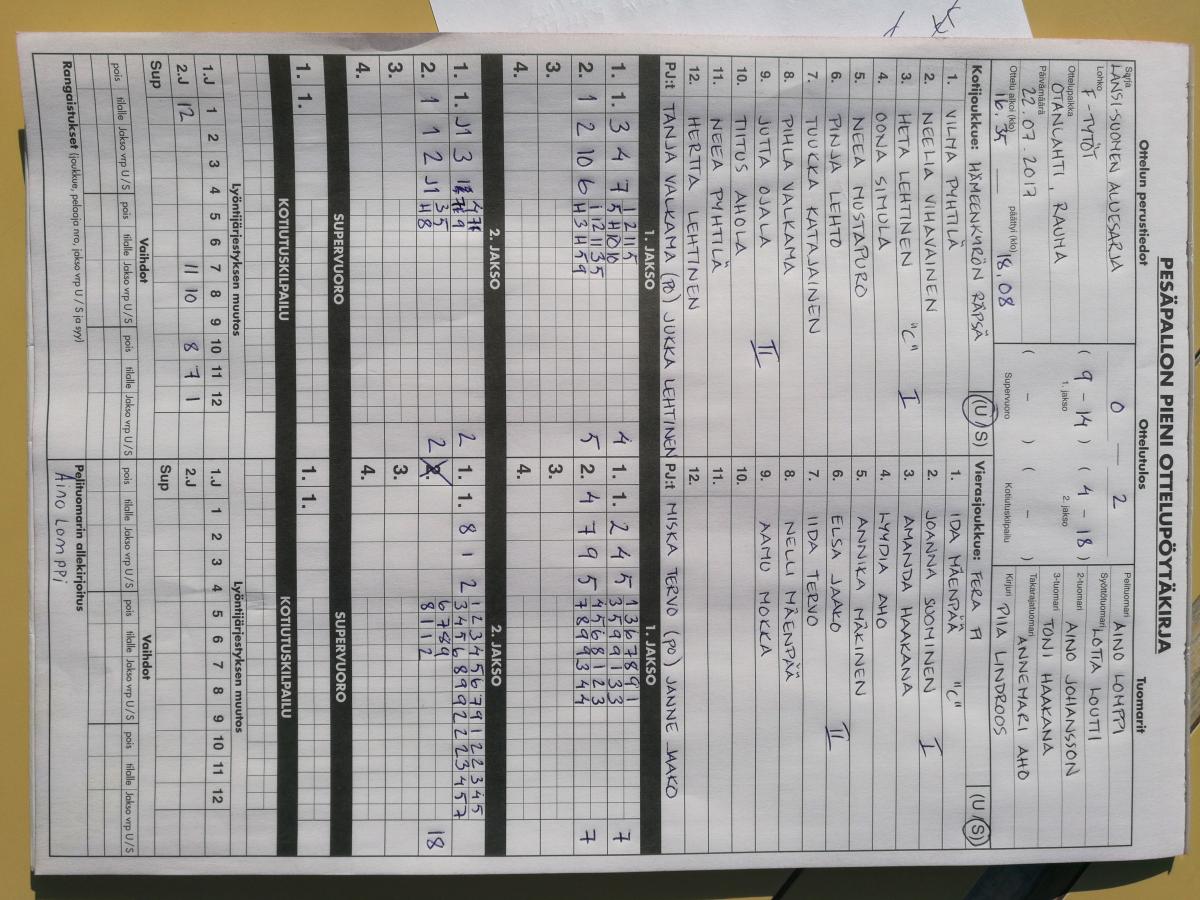 PESÄPALLON PIENI OTTELUPÖYTÄKIRJA
Ottelun perustiedot
Sarja
LÄNSI-SUOMEN ALUESARJA
Lohko
F-TYTÖT
Ottelupaikka
OTANLAHTI, RAUMA
Päivämäärä
22.07.2017
Ottelu alkoi (klo) 16.35 päättyi (klo) 18.08
Ottelutulos
0 — 2
( 9 - 14 ) ( 4 - 18 )
1. jakso 2. jakso
( - ) ( - )
Supervuoro Kotiutuskilpailu
Tuomarit
Pelituomari AINO LOMPPI
Syöttötuomari LOTTA LOUTTI
2-tuomari AINO JOHANSSON
3-tuomari TONI HAAKANA
Takarajatuomari ANNEMARI AHO
Kirjuri PIIA LINDROOS
Kotijoukkue: HÄMEENKYRÖN RÄPSÄ (U/S)
1. VILMA PYHTILÄ
2. NEELLA VIHAVAINEN
3. HETA LEHTINEN "C" I
4. OONA SIMULA
5. NEEA MUSTAPURO
6. PINJA LEHTO
7. TUUKKA KATAJAINEN
8. PIHLA VALKAMA
9. JUTTA OJALA II
10. TIITUS AHOLA
11. NEEA PYHTILÄ
12. HERTTA LEHTINEN
PJ:t TANJA VALKAMA (PO) JUKKA LEHTINEN
Vierasjoukkue: FERA F1 (U/S)
1. IDA MÄENPÄÄ "C"
2. JOANNA SUOMINEN I
3. AMANDA HAAKANA
4. LYYDIA AHO
5. ANNIKA MÄKINEN
6. ELSA JAAKO II
7. IIDA TERVO
8. NELLI MÄENPÄÄ
9. AAMU MOKKA
10.
11.
12.
PJ:t MISKA TERVO (PO) JANNE JAAKO
1. JAKSO
1. 1. 3 4 7 4
2. 1 2 10 6 5
3.
4.
1. JAKSO
1. 1. 2 4 5 7
2. 4 7 9 5 7
3.
4.
2. JAKSO
1. 1. J1 3 2
2. 1 1 2 J1 2
3.
4.
2. JAKSO
1. 1. 8 1 2
2. 18
3.
4.
SUPERVUORO
1. 1.
SUPERVUORO
1. 1.
KOTIUTUSKILPAILU
KOTIUTUSKILPAILU
Lyöntijärjestyksen muutos
1 2 3 4 5 6 7 8 9 10 11 12
1.J
2.J 12 11 10 8 7 1
Sup
Lyöntijärjestyksen muutos
1 2 3 4 5 6 7 8 9 10 11 12
1.J
2.J
Sup
Vaihdot
pois tilalle Jakso vrp U/S pois tilalle Jakso vrp U/S pois tilalle Jakso vrp U/S
Vaihdot
pois tilalle Jakso vrp U/S pois tilalle Jakso vrp U/S pois tilalle Jakso vrp U/S
Rangaistukset (joukkue, pelaaja nro, jakso vrp U / S ja syy)
Pelituomarin allekirjoitus
Aino Lomppi